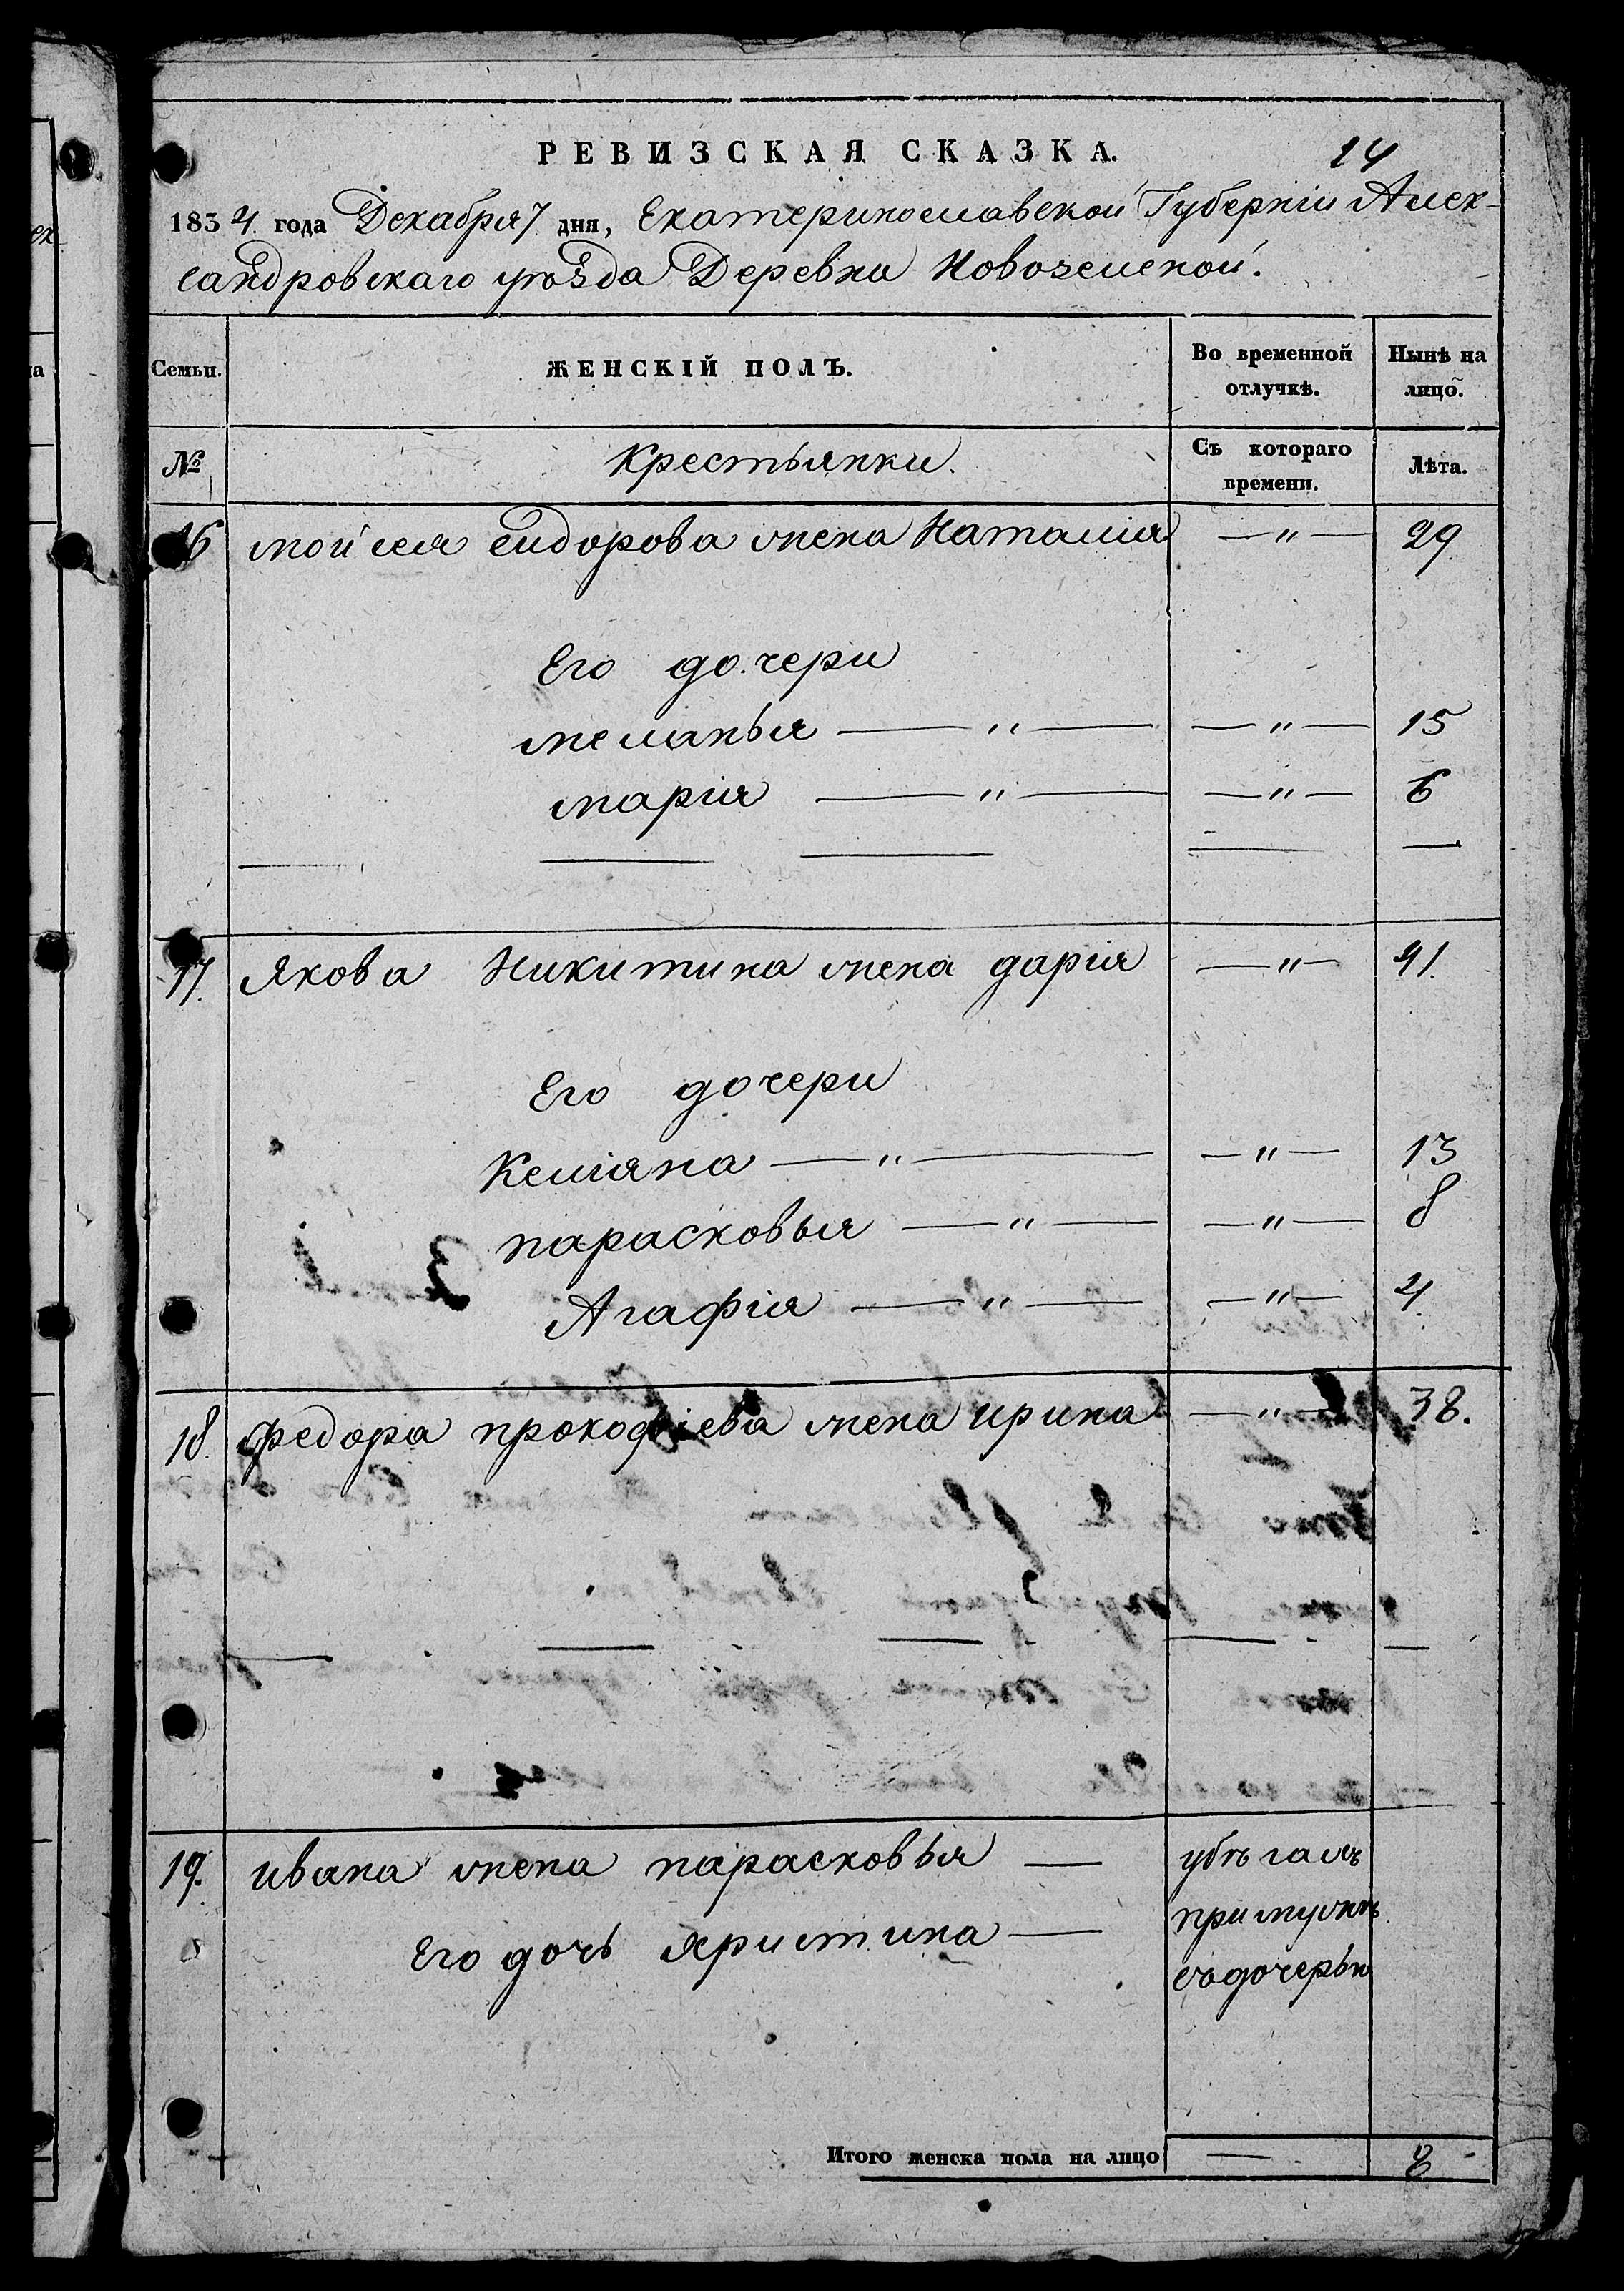 РЕВИЗСКАЯ СКАЗКА. 14
1834 года Декабря 7 дня, Екатеринославской Губерніи Алек-
сандровскаго уѣзда Деревни Новоземской.
Семьи. ЖЕНСКІЙ ПОЛЪ. Во временной отлучкѣ. Нынѣ на лицо.
№ Крестьянки. Съ котораго времени. Лѣта.
16 мойсея сидорова жена Наталия — " — 29
Его дочери
меланья — " — — " — 15
марія — " — — " — 6
17. Якова Никитина жена дарія — " — 41.
Его дочери
Кеміяна — " — — " — 13
парасковья — " — — " — 8
Агафія — " — — " — 4.
18. федора прокофіева жена ирина — " — 38.
19. ивана жена парасковья — убѣгалъ
Его дочь христина — при мужѣ
съ дочерью
Итого женска пола на лицо — 8